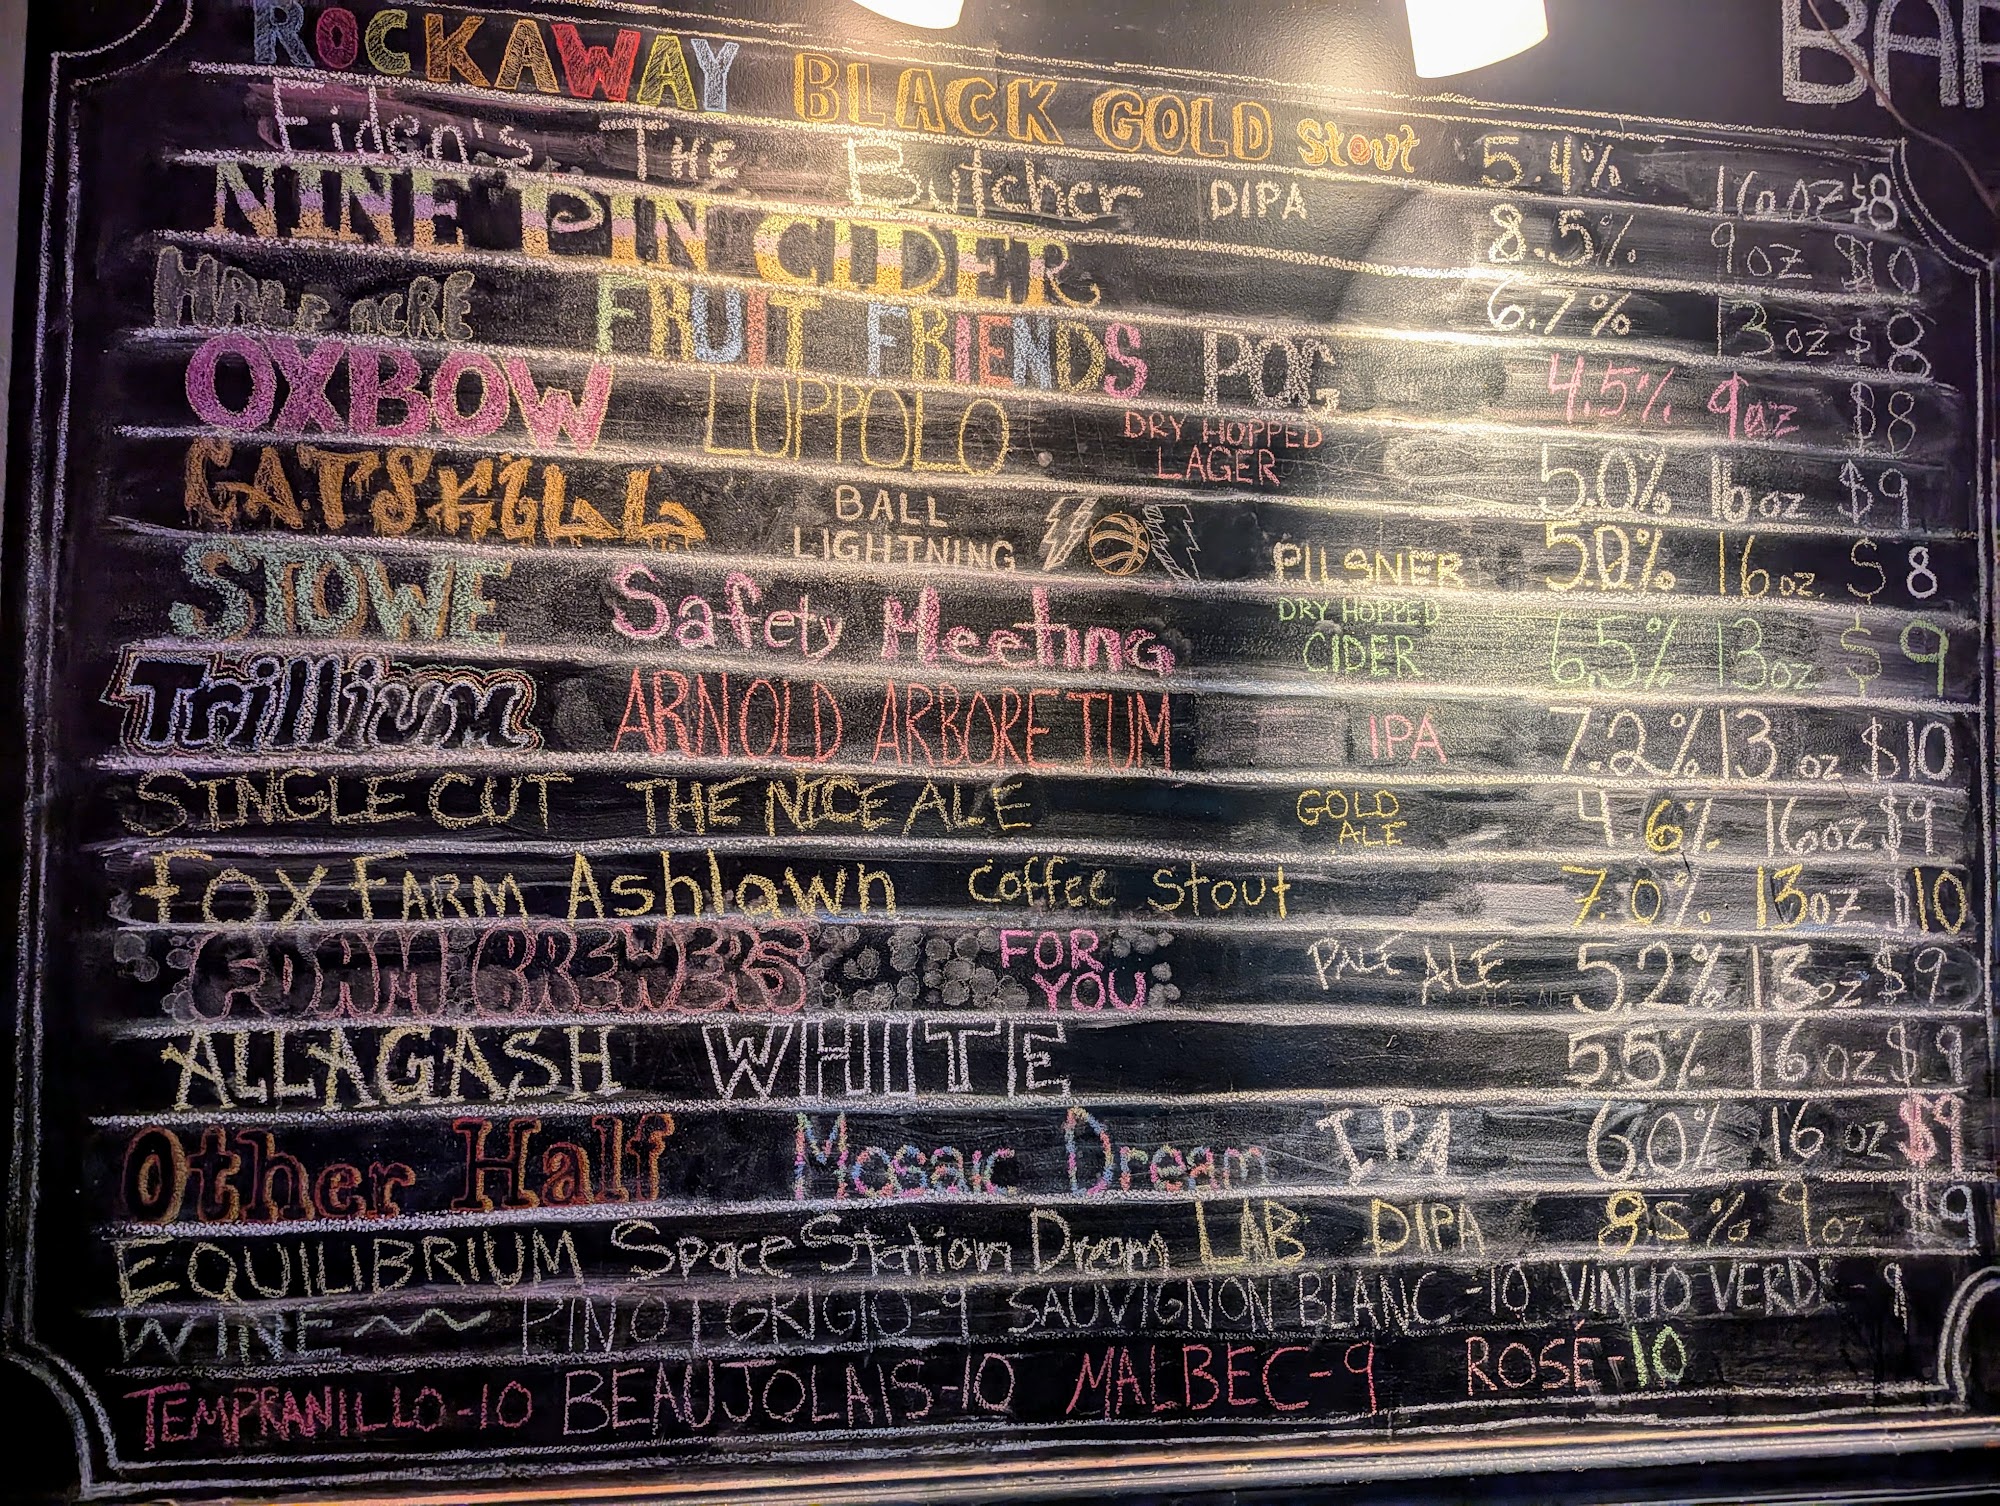 BAR
ROCKAWAY BLACK GOLD Stout 5.4% 16oz $8
Eiden's The Butcher DIPA 8.5% 9oz $10
NINE PIN CIDER 6.7% 13oz $8
HALF ACRE FRUIT FRIENDS POG 4.5% 9oz $8
OXBOW LUPPOLO DRY HOPPED LAGER 5.0% 16oz $9
CATSKILL BALL LIGHTNING PILSNER 5.0% 16oz. $8
STOWE Safety Meeting DRY HOPPED CIDER 6.5% 13oz $9
Trillium ARNOLD ARBORETUM IPA 7.2% 13oz $10
SINGLECUT THE NICE ALE GOLD ALE 4.6% 16oz $9
FOX FARM Ashlawn Coffee Stout 7.0% 13oz $10
FOAM BREWERS FOR YOU PALE ALE 5.2% 13oz $9
ALLAGASH WHITE 5.5% 16oz $9
Other Half Mosaic Dream IPA 6.0% 16oz $9
EQUILIBRIUM Space Station Dream LAB DIPA 8.5% 9oz $9
WINE PINOT GRIGIO-9 SAUVIGNON BLANC-10 VINHO VERDE-9
TEMPRANILLO-10 BEAUJOLAIS-10 MALBEC-9 ROSÉ-10